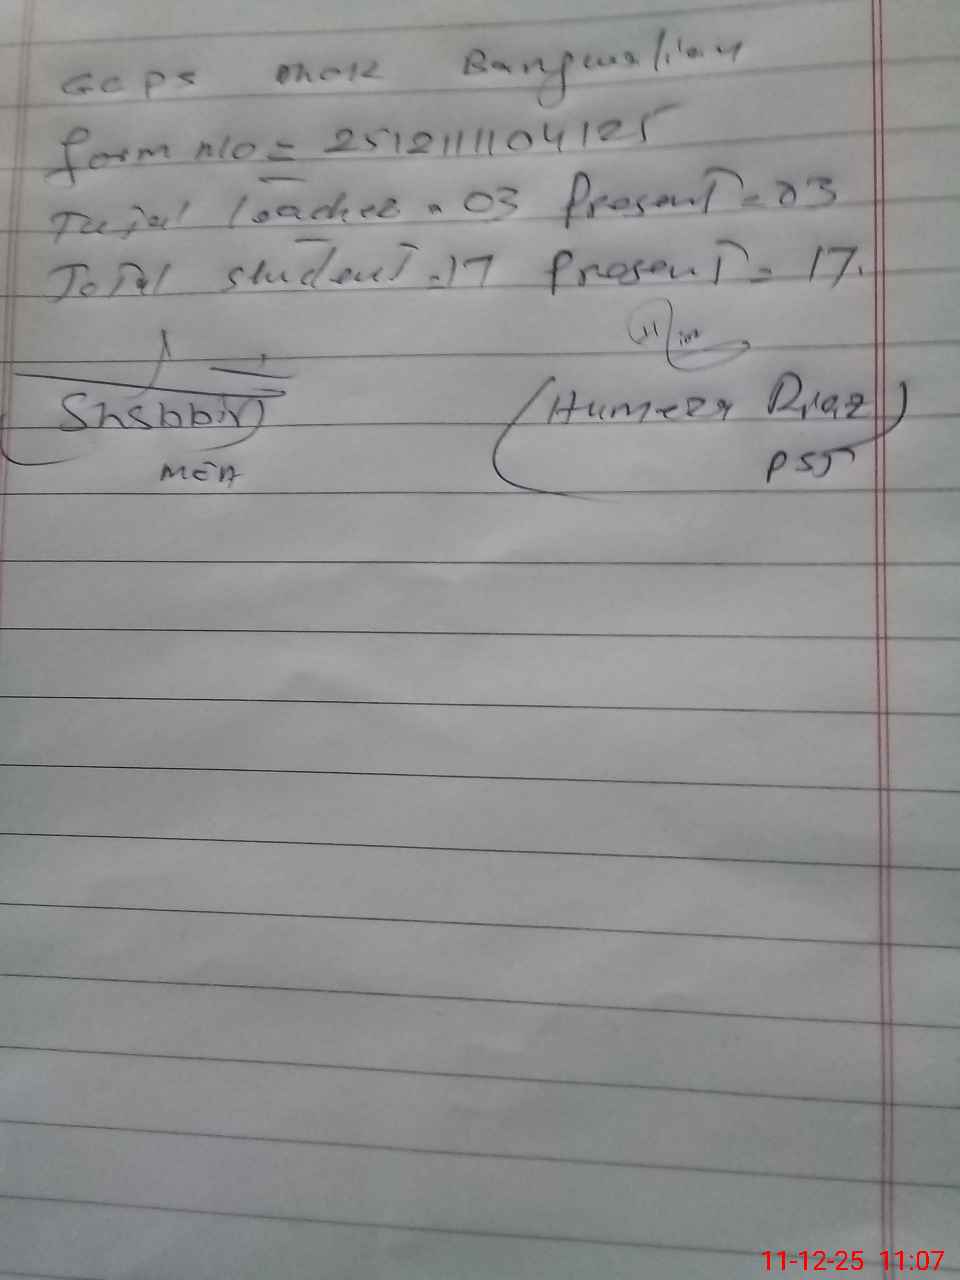 GCPS Dhok Bangwalian
form no = 251211104125
Total Teacher = 03 Present = 03
Total student = 17 Present = 17.
Shabbir
(Humera Riaz)
MEA
PST
11-12-25 11:07